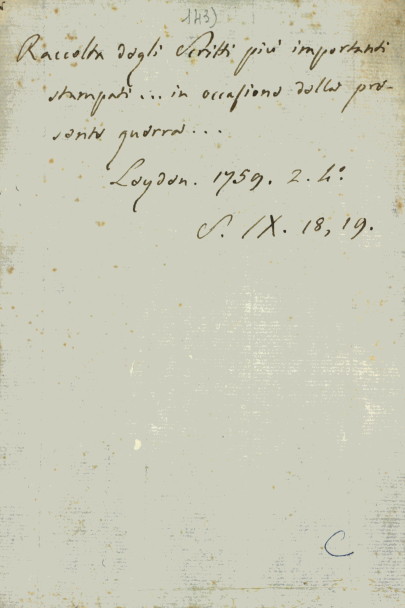 143)
Raccolta degli Scritti più importanti
stampati... in occasione della pre-
sente guerra...
Leyden. 1759. 2. 4°.
S. IX. 18, 19.
C